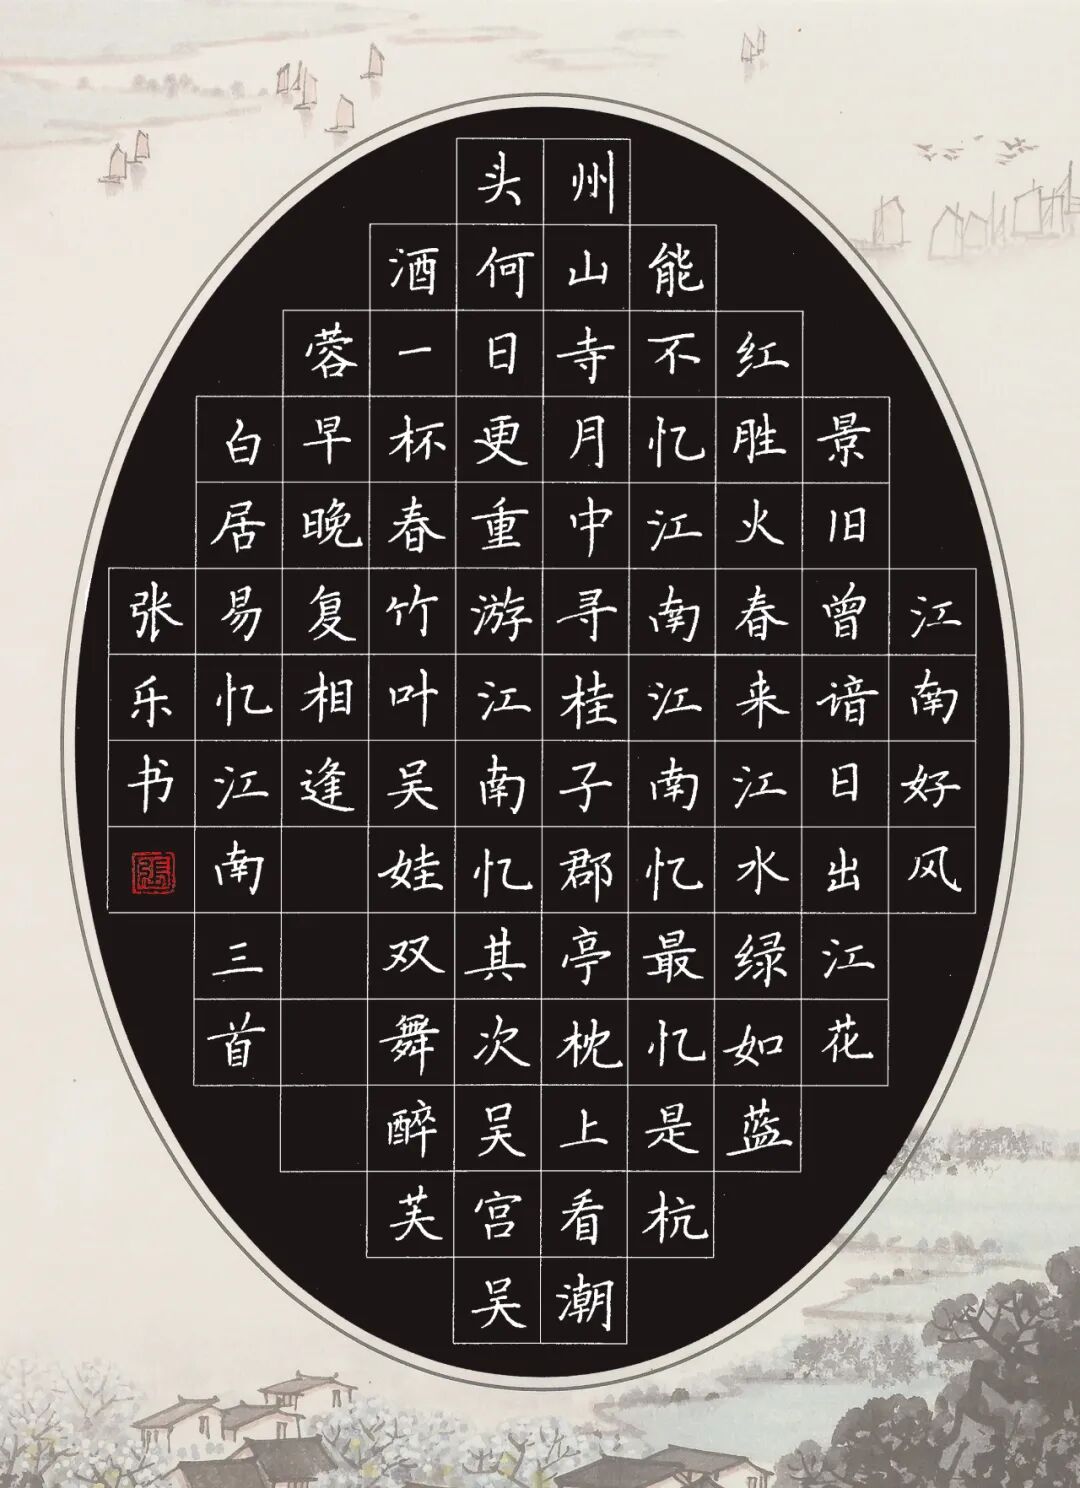 江南好风
景旧曾谙日出江花
红胜火春来江水绿如蓝
能不忆江南江南忆最忆是杭
州山寺月中寻桂子郡亭枕上看潮
头何日更重游江南忆其次忆吴宫吴
酒一杯春竹叶吴娃双舞醉芙
蓉早晚复相逢
白居易忆江南三首
张乐书
张